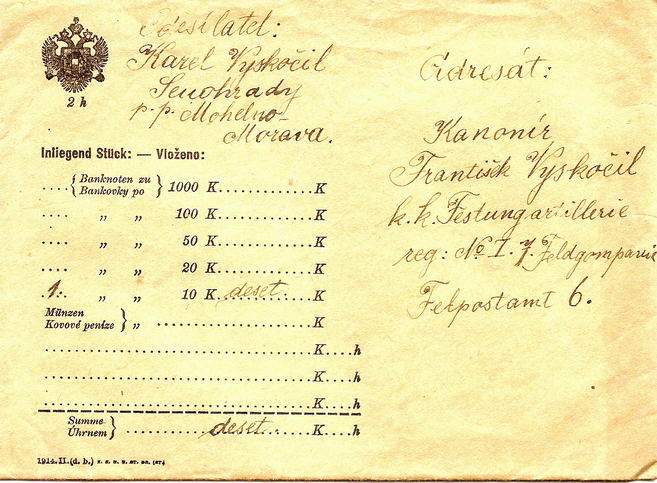 Odesílatel:
Karel Vyskočil
Senohrady
p. p. Mohelno
Morava.
2 h
Adresát:
Kanonír
František Vyskočil
k. k. Festungartillerie
reg: No I. 7. Feldgompanie
Felpostamt 6.
Inliegend Stück: — Vloženo:
.... { Banknoten zu
Bankovky po } 1000 K..............K
.... „ „ 100 K..............K
.... „ „ 50 K..............K
.... „ „ 20 K..............K
.1.. „ „ 10 K..deset......K
Münzen
Kovové peníze } „ ......................K
K....h
K....h
K....h
Summe
Úhrnem } ..............deset......K....h
1914. II. (d. b.)